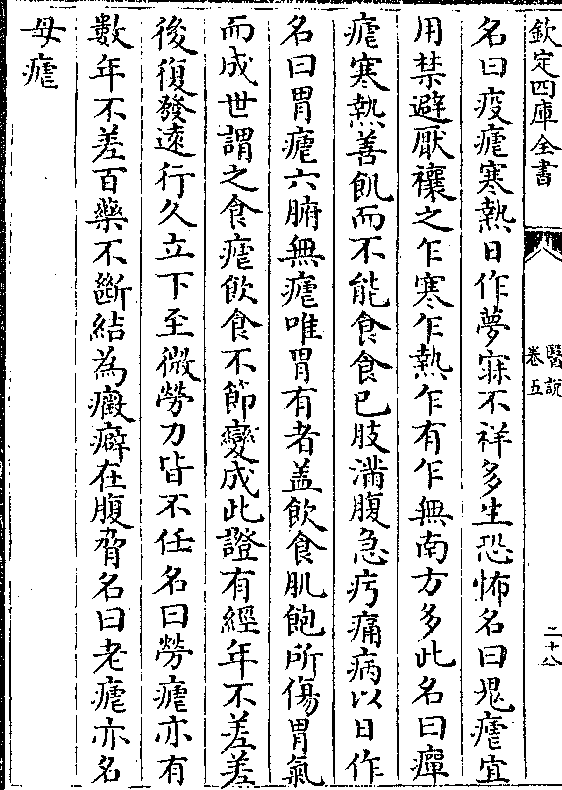 欽定四庫全書
醫說
卷五
二十八
名曰疫瘧寒熱日作夢寐不祥多生恐怖名曰鬼瘧宜
用禁避厭禳之乍寒乍熱乍有乍無南方多此名曰瘴
瘧寒熱善飢而不能食食已肢滿腹急㽲痛病以日作
名曰胃瘧六腑無瘧唯胃有者盖飲食肌飽所傷胃氣
而成世謂之食瘧飲食不節變成此證有經年不差差
後復發遠行久立下至微勞力皆不任名曰勞瘧亦有
數年不差百藥不斷結為癥癖在腹脅名曰老瘧亦名
母瘧